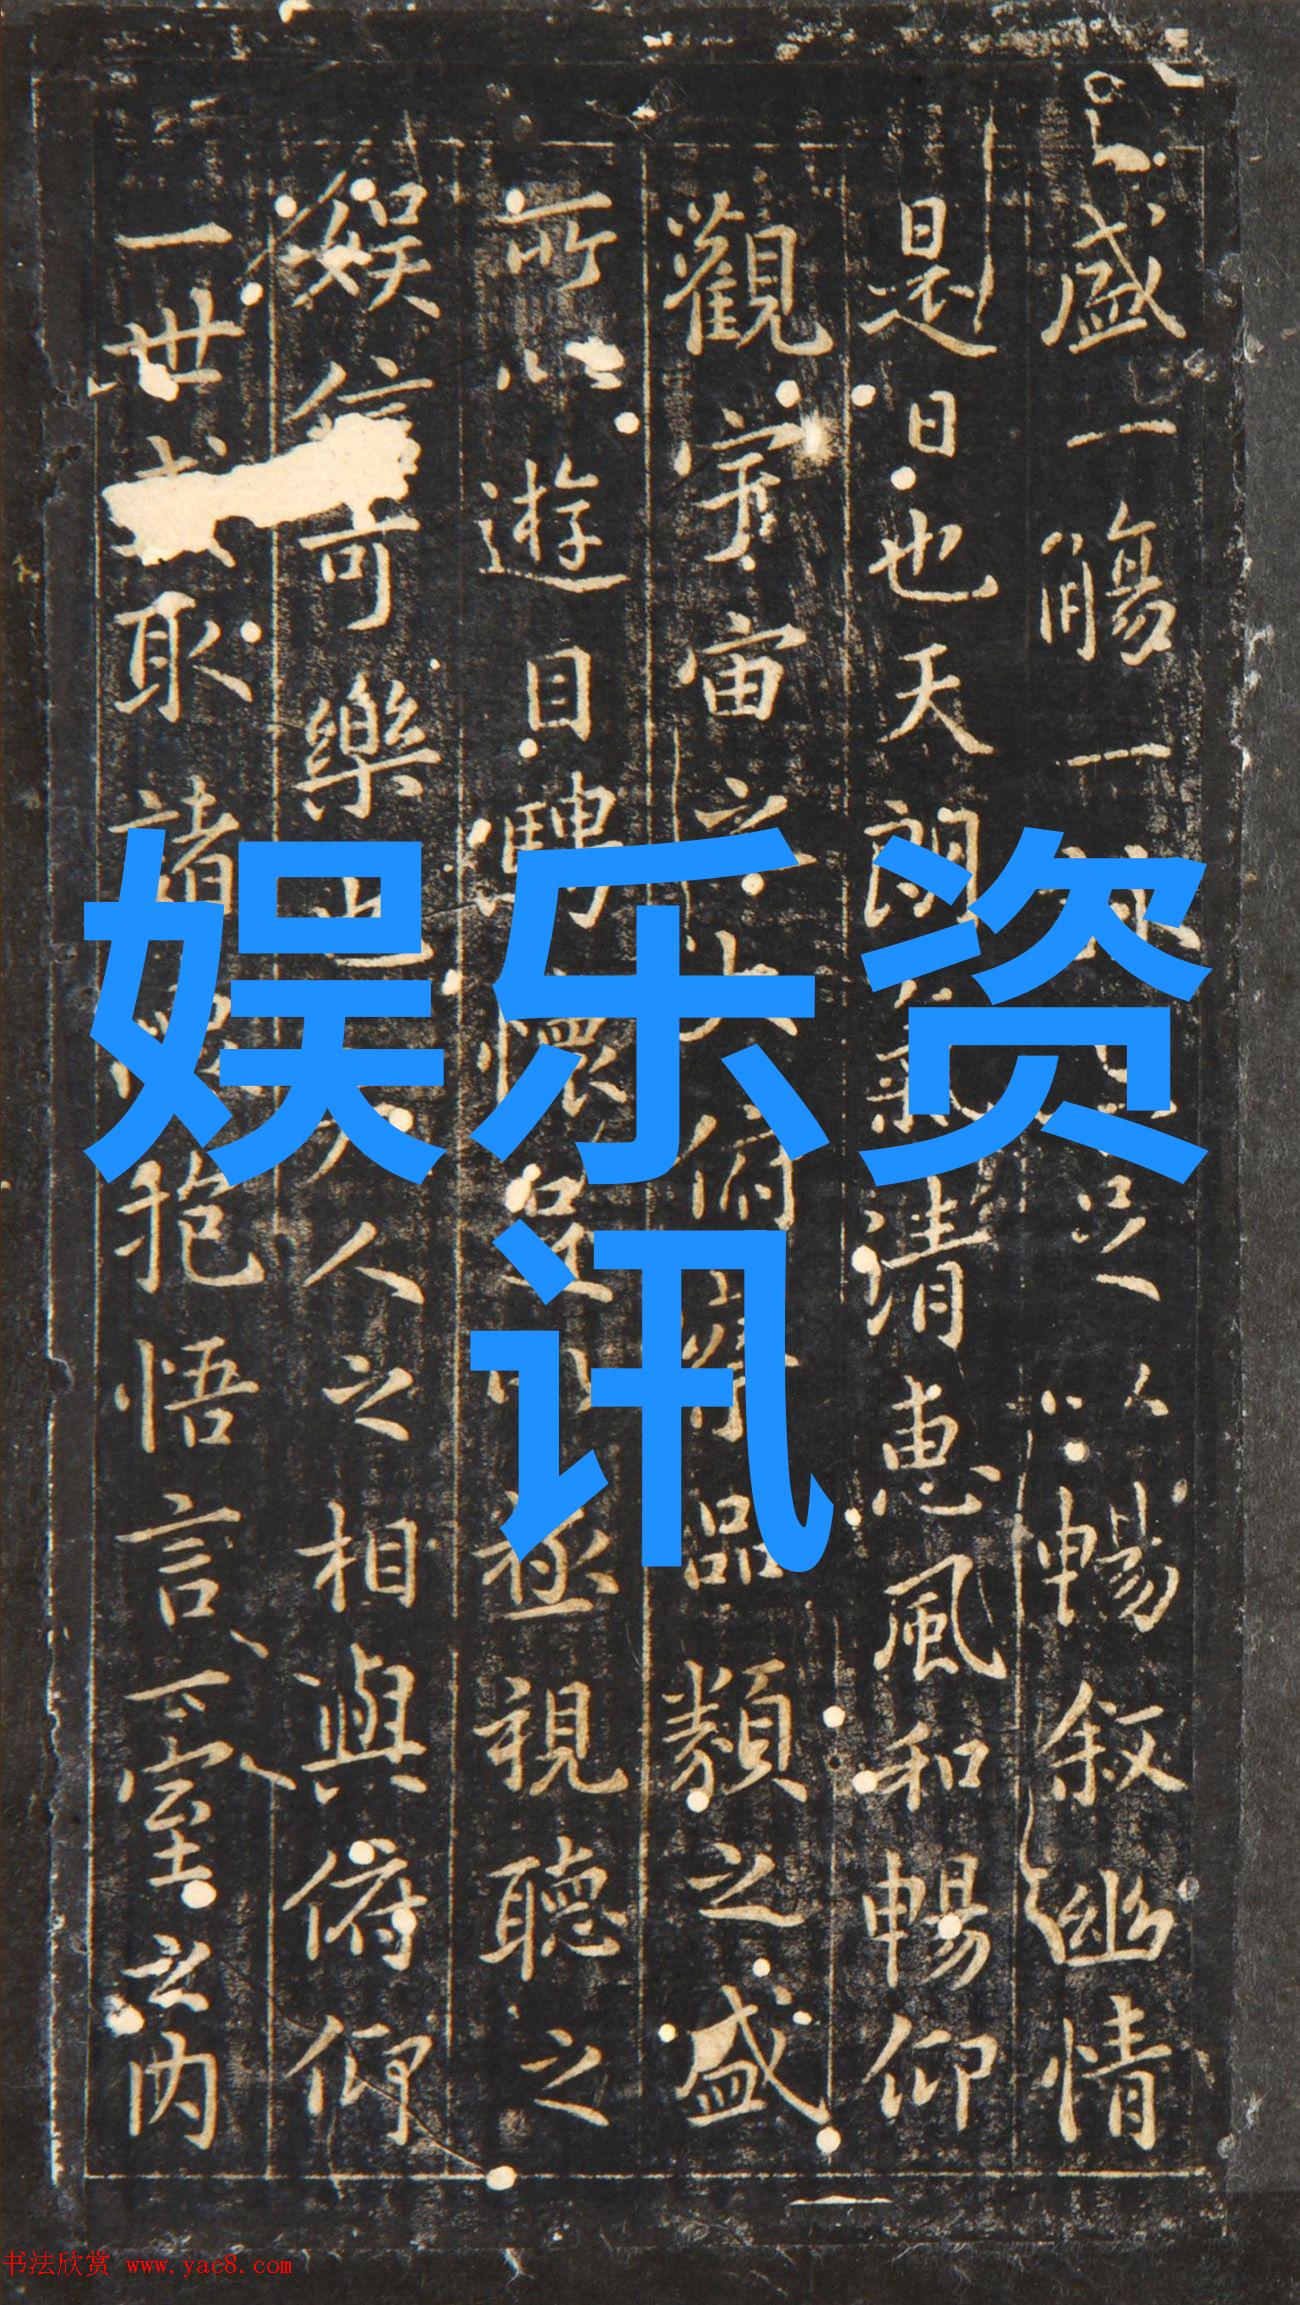 盛一觴一足以暢叙幽情
是日也天朗氣清惠風和暢仰
觀宇宙之大俯察品類之盛
所以遊目騁懷足以極視聽之
娱信可樂也夫人之相與俯仰
一世取諸抱悟言一室之内
娱乐资
讯
书法欣赏 www.yac8.com